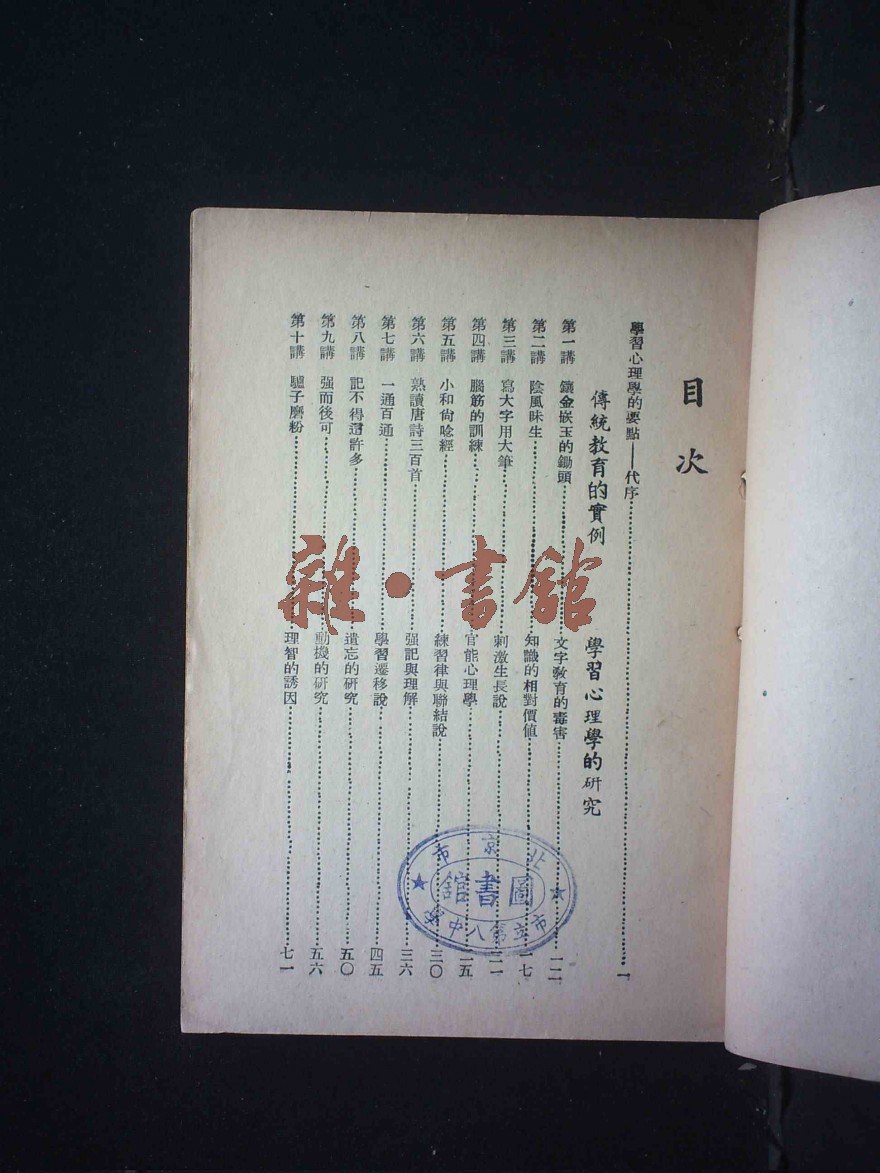 目次
學習心理學的要點——代序……一
傳統教育的實例 學習心理學的研究
第一講 鑲金嵌玉的鋤頭……文字教育的毒害……一二
第二講 陰風昧生……知識的相對價值……一七
第三講 寫大字用大筆……刺激生長說……二一
第四講 腦筋的訓練……官能心理學……二五
第五講 小和尙唸經……練習律與聯結說……三〇
第六講 熟讀唐詩三百首……强記與理解……三六
第七講 一通百通……學習遷移說……四五
第八講 記不得這許多……遺忘的研究……五〇
第九講 强而後可……動機的研究……五六
第十講 驢子磨粉……理智的誘因……七一
雜·書舘
北京市
圖書館
市立第八中學